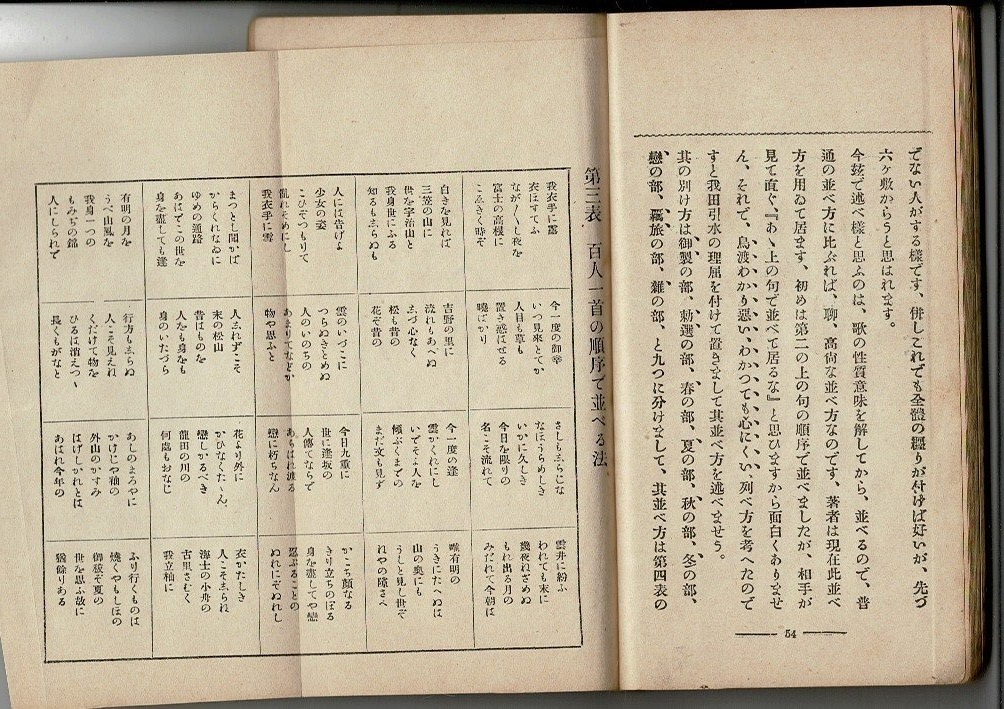 でない人がする樣です、併しこれでも全體の纒りが付けば好いが、先づ
六ケ敷からうと思はれます。
今玆で述べ樣と思ふのは、歌の性質意味を解してから、並べるので、普
通の並べ方に比ぶれば、聊、高尙な並べ方なのです、著者は現在此並べ
方を用ゐて居ます、初めは第二の上の句の順序で並べましたが、相手が
見て直ぐ、『あゝ上の句で並べて居るな』と思ひますから面白くありませ
ん、それで、鳥渡わかり惡い、わかつても心にくい列べ方を考へたので
すと我田引水の理屈を付けて置きまして其並べ方を述べませう。
其の別け方は御製の部、勅選の部、春の部、夏の部、秋の部、冬の部、
戀の部、羈旅の部、雜の部、と九つに分けまして、其並べ方は第四表の
54
第三表 百人一首の順序で並べる法
我衣手に露
衣ほすてふ
なが〱し夜を
富士の高根に
こゑきく時ぞ
今一度の御幸
いつ見來とてか
人目も草も
置き惑はせる
曉ばかり
さしもゑらじな
なほうらめしき
いかに久しき
今日を限りの
名こそ流れて
雲井に紛ふ
われても末に
幾夜ねざめぬ
もれ出る月の
みだれて今朝は
白きを見れば
三笠の山に
世を宇治山と
我身世にふる
知るもゑらぬも
吉野の里に
流れもあへぬ
ゑづ心なく
松も昔の
花ぞ昔の
今一度の逢
雲がくれにし
いでそよ人を
傾ぶくまでの
まだ文も見ず
唯有明の
うきにたへぬは
山の奥にも
うしと見し世ぞ
れやの隙さへ
人には告げよ
少女の姿
こひぞつもりて
亂れそめにし
我衣手に雪
雲のいづこに
つらぬきとめぬ
人のいのちの
あまりてなどか
物や思ふと
今日九重に
世に逢坂の
人傳てならで
あらはれ渡る
戀に朽ちなん
かこち顏なる
きり立ちのぼる
身を盡してや戀
忍ぶることの
ぬれにぞぬれし
まつとし聞かば
からくれなゐに
ゆめの通路
あはでこの世を
身を盡しても逢
人ゑれずこそ
末の松山
昔はものを
人をも身をも
身のいたづら
花より外に
かひなくたゝん
戀しかるべき
龍田の川の
何處もおなじ
衣かたしき
人こそゑられ
海士の小舟の
古里さむく
我立杣に
有明の月を
うべ山風を
我身一つの
もみぢの錦
人にしられで
行方もゑらぬ
人こそ見えね
くだけて物を
ひるは消えつゝ
長くもがなと
あしのまろやに
かけじや袖の
外山のかすみ
はげしかれとは
あはれ今年の
ふり行くものは
燒くやもしほの
御祓ぞ夏の
世を思ふ故に
猶餘りある